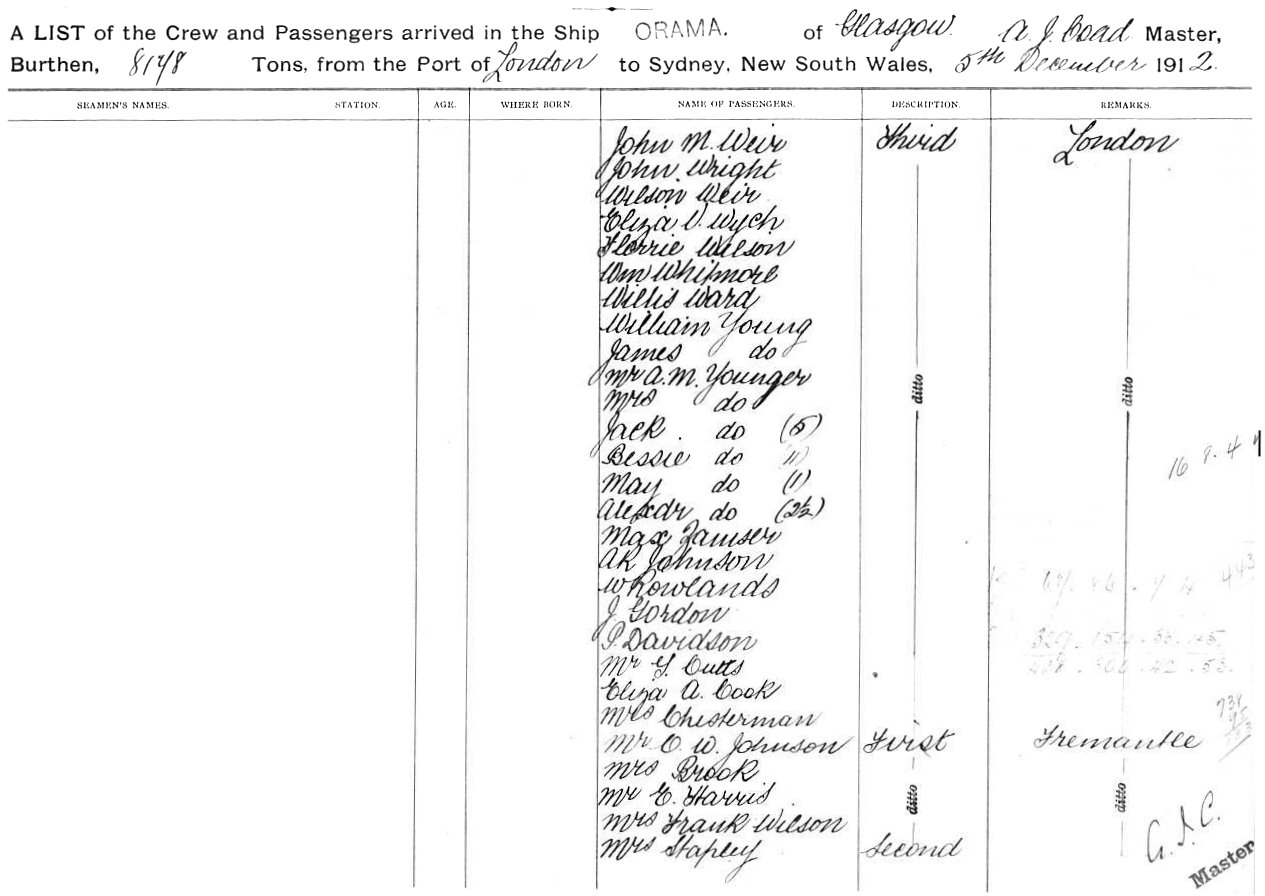 A LIST of the Crew and Passengers arrived in the Ship ORAMA. of Glasgow. A. J. Coad Master,
Burthen, 8178 Tons, from the Port of London to Sydney, New South Wales, 5th December 1912.
SEAMEN'S NAMES. STATION. AGE. WHERE BORN. NAME OF PASSENGERS. DESCRIPTION. REMARKS.
John M. Weir Third London
John Wright
Wilson Weir
Eliza V. Wych
Florrie Wilson
Wm Whitmore
Willis Ward
William Young
James do
Mr A. M. Younger
ditto ditto
Mrs do
Jack do (5)
Bessie do (11)
16 9. 4
May do (1)
Alexdr do (2½)
Max
AR Johnson
W Rowlands
J Gordon
P. Davidson
Mr G. Cutts
Eliza A. Cook
Mrs Chesterman
Mr C. W. Johnson First Fremantle
Mrs Brook
Mr E. Harris
ditto ditto
Mrs Frank Wilson
Mrs Stapley Second
Master